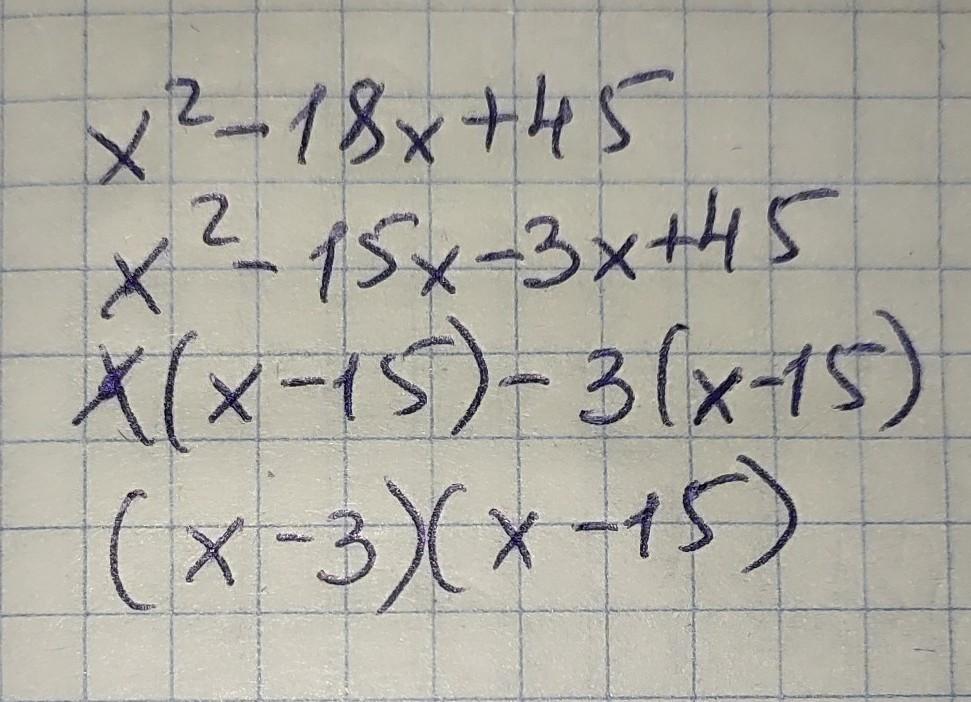 x²-18x+45
x²-15x-3x+45
x(x-15)-3(x-15)
(x-3)(x-15)